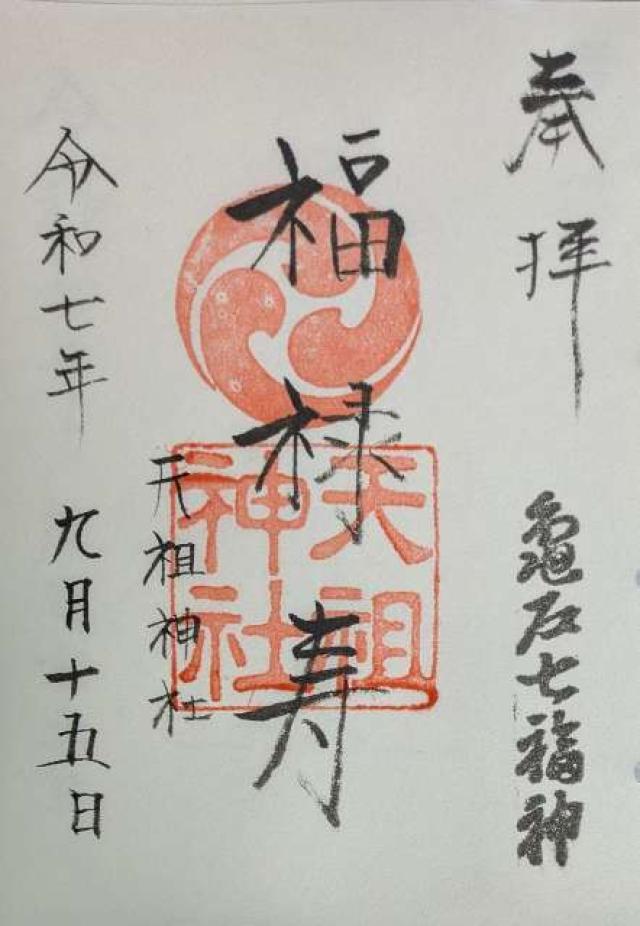 奉拝
亀戸七福神
福禄寿
天祖神社
天祖神社
令和七年 九月十五日